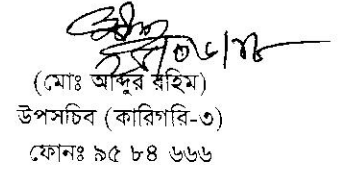 (মোঃ আব্দুর রহিম)
উপসচিব (কারিগরি-৩)
ফোনঃ ৯৫ ৮৪ ৬৬৬